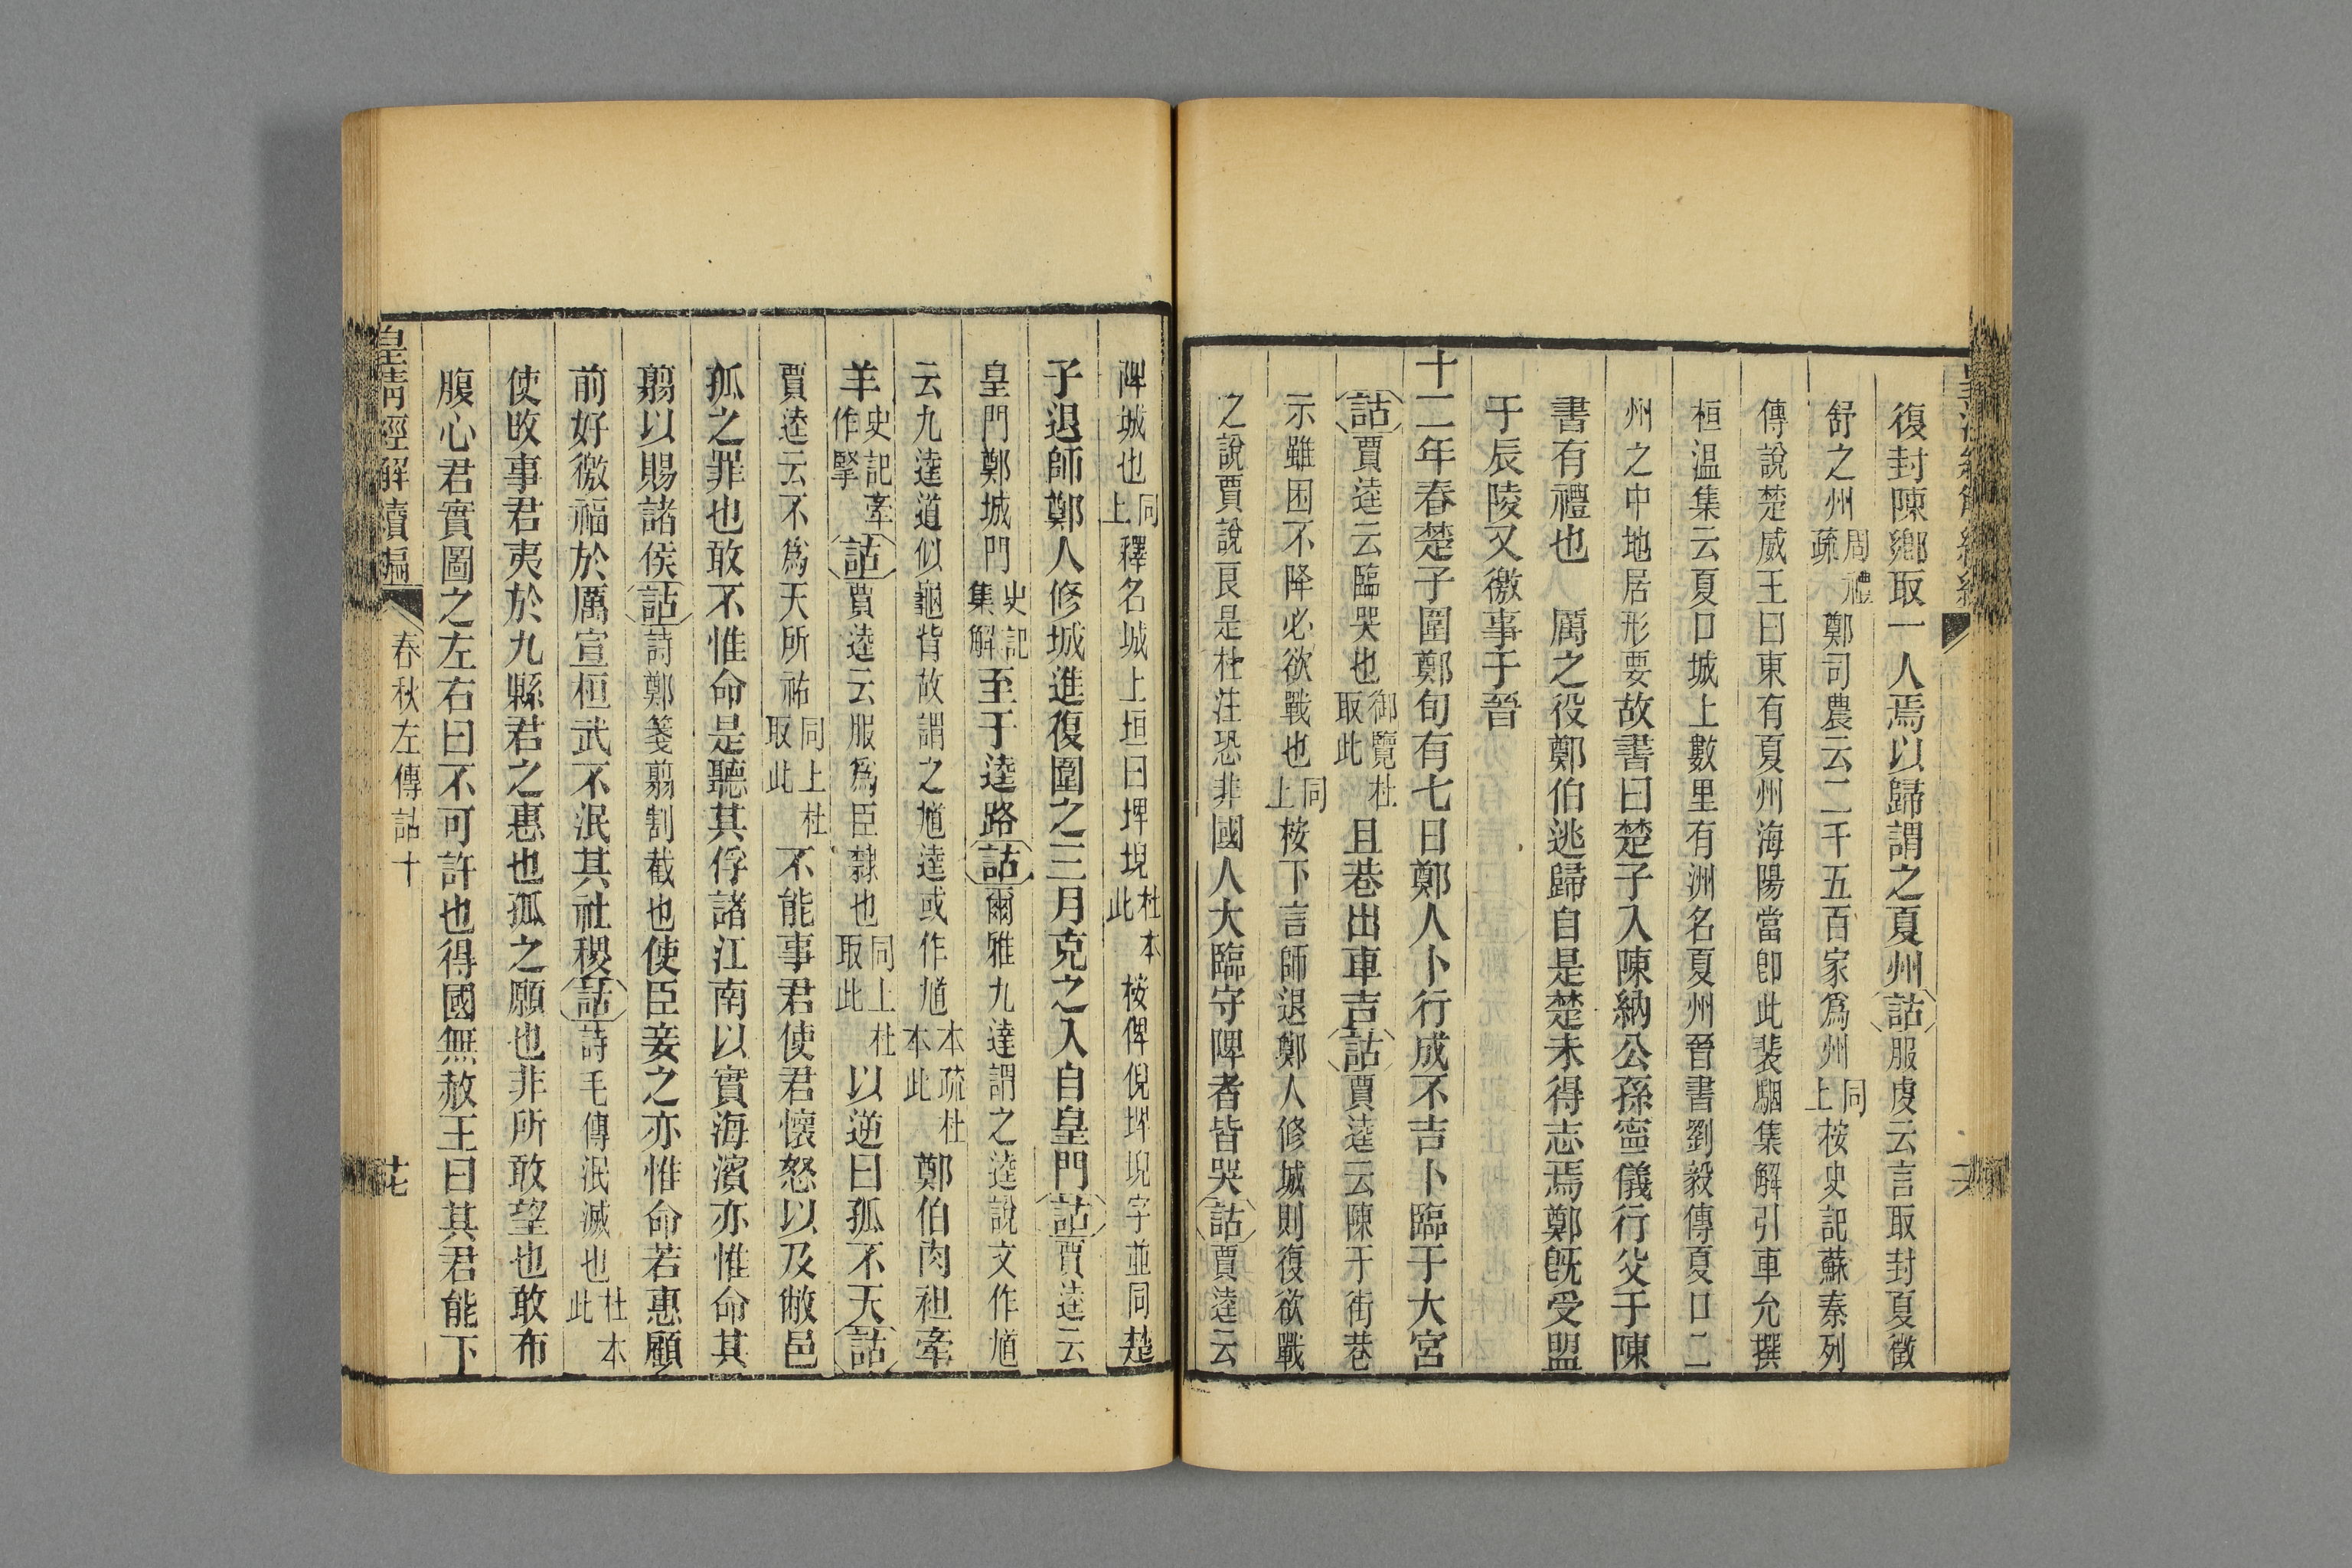 復封陳鄉取一人焉以歸謂之夏州詁服虔云言取封夏徵
舒之州周禮疏鄭司農云二千五百家爲州同上桉史記蘇秦列
傳說楚威王曰東有夏州海陽當卽此裴駰集解引車允撰
桓温集云夏口城上數里有洲名夏州晉書劉毅傳夏口二
州之中地居形要故書曰楚子入陳納公孫寍儀行父于陳
書有禮也 厲之役鄭伯逃歸自是楚未得志焉鄭旣受盟
于辰陵又徼事于晉
十二年春楚子圍鄭旬有七日鄭人卜行成不吉卜臨于大宮
詁賈逵云臨哭也御覽杜取此且巷出車吉詁賈逵云陳于街巷
示雖困不降必欲戰也同上桉下言師退鄭人修城則復欲戰
之說賈說良是杜注恐非國人大臨守陴者皆哭詁賈逵云
陴城也同上釋名城上垣曰埤堄杜本此桉俾倪埤堄字並同楚
子退師鄭人修城進復圍之三月克之入自皇門詁賈逵云
皇門鄭城門史記集解至于逵路詁爾雅九達謂之逵說文作馗
云九達道似龜背故謂之馗逵或作馗本疏杜本此鄭伯肉袒牽
羊史記牽作掔詁賈逵云服爲臣隸也同上杜取此以逆曰孤不天詁
賈逵云不爲天所祐同上杜取此不能事君使君懷怒以及敝邑
孤之罪也敢不惟命是聽其俘諸江南以實海濱亦惟命其
翦以賜諸侯詁詩鄭箋翦割截也使臣妾之亦惟命若惠顧
前好徼福於厲宣桓武不泯其社稷詁詩毛傳泯滅也杜本此
使改事君夷於九縣君之惠也孤之願也非所敢望也敢布
腹心君實圖之左右曰不可許也得國無赦王曰其君能下
皇清經解續編 春秋左傳詁十